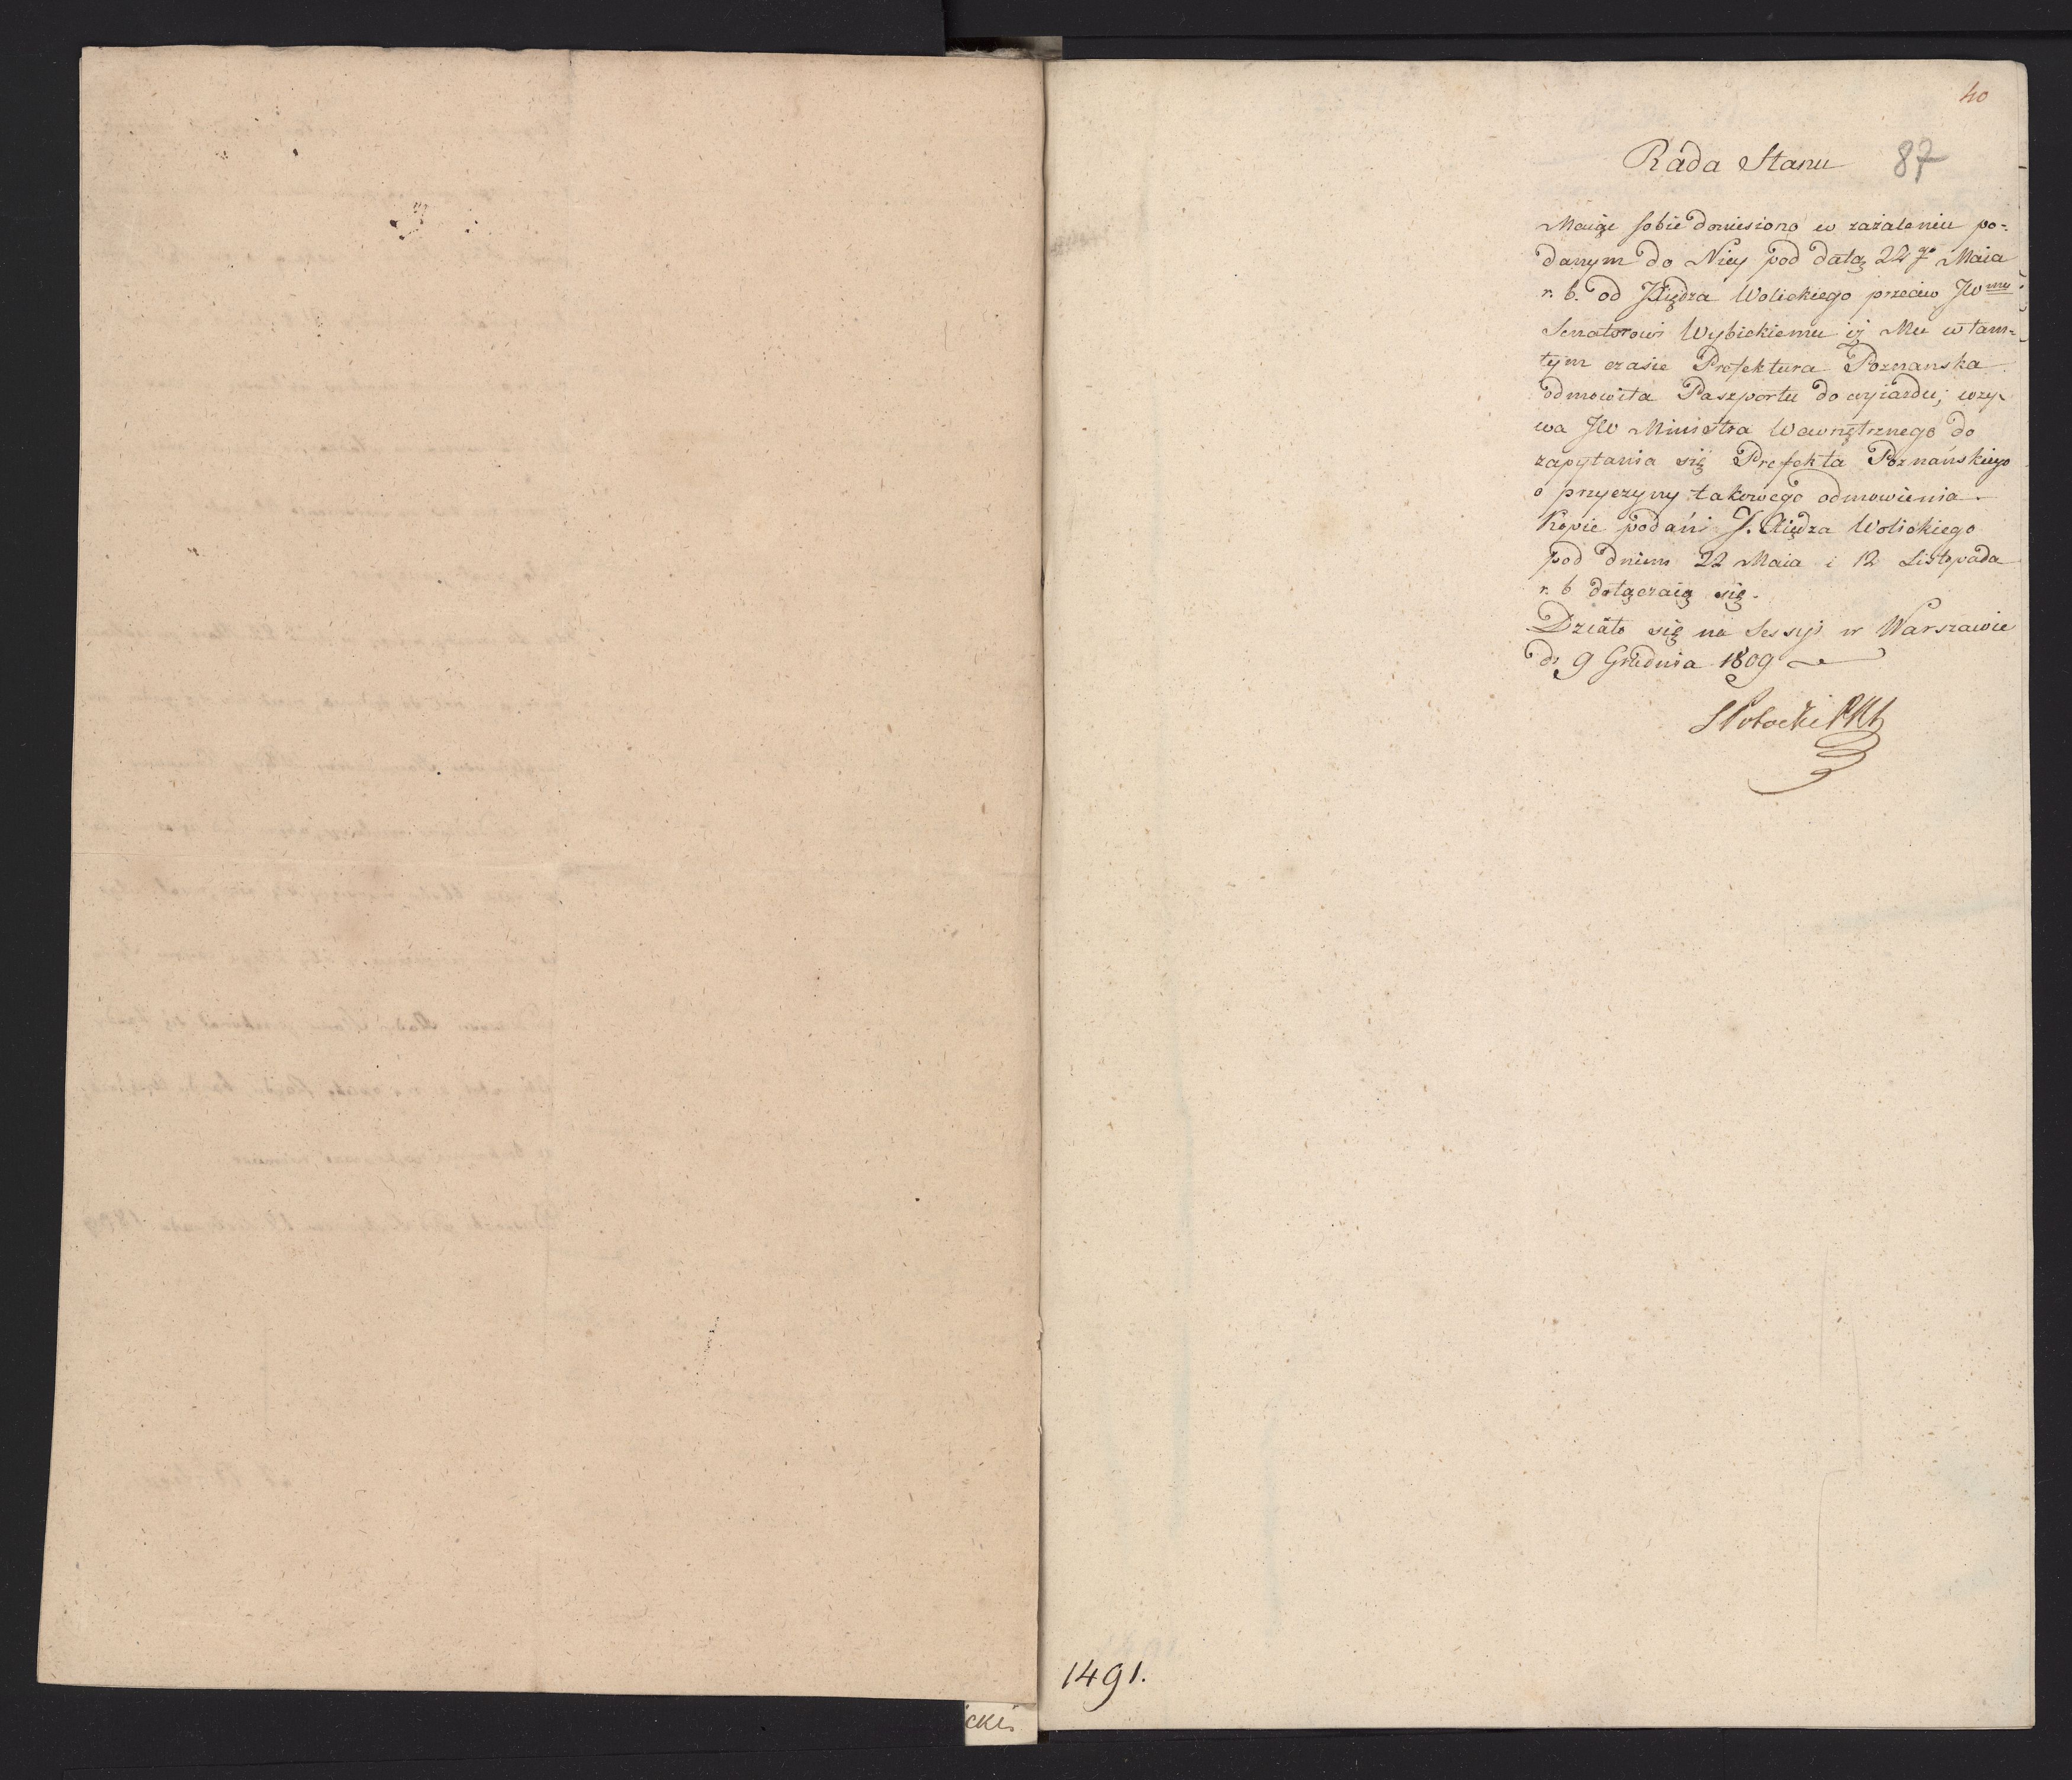 40
Rada Stanu 87
Maiąc sobie doniesiono w zażaleniu po=
danym do Niey pod datą 22go Maia
r. b. od Xiędza Wolickiego przeciw JWmu
Senatorowi Wybickiemu iż Mu w tam=
tym czasie Prefektura Poznanska
odmowiła Paszportu do wyiazdu; wzy-
wa JW Ministra Wewnętrznego do
zapytania się Prefekta Poznańskiego
o przyczyny takowego odmowienia.
Kopie podań J. Xiędza Wolickiego
pod dniem 22 Maia i 12 Listopada
r. b dołączaią się.
Działo się na Sessyi w Warszawie
d. 9 Grudnia 1809
SPotocki
1491.
icki.